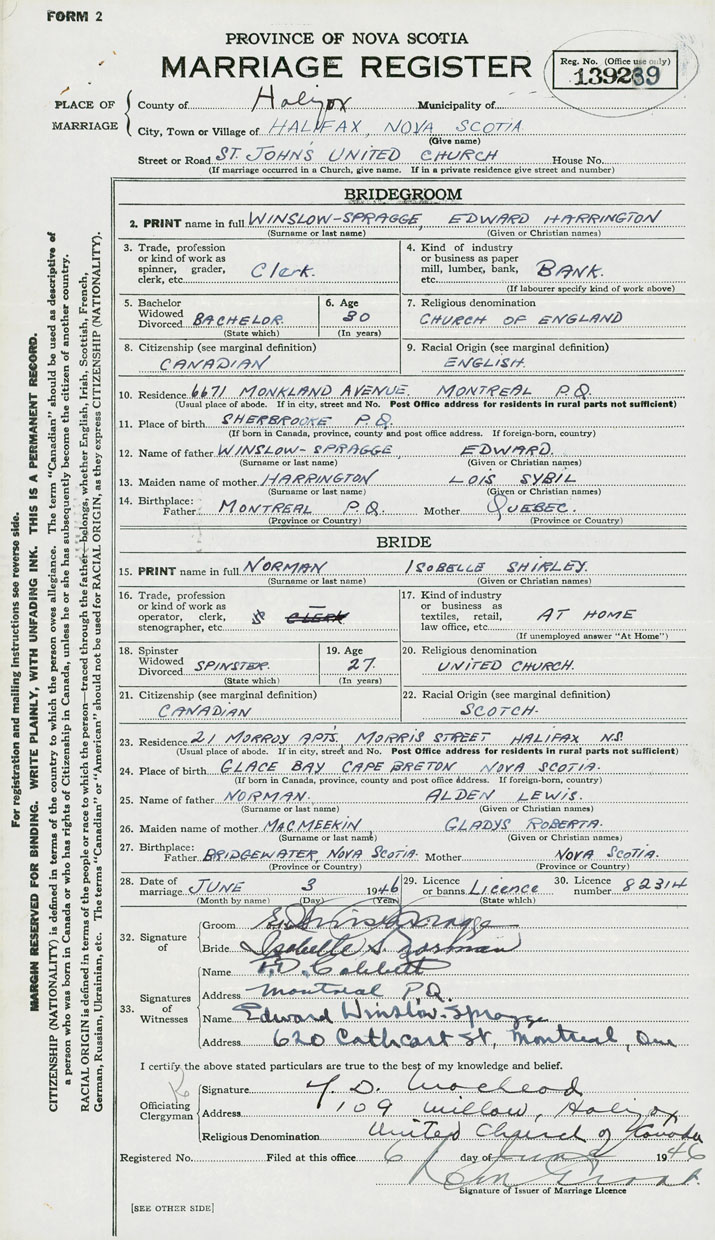 FORM 2
PROVINCE OF NOVA SCOTIA
MARRIAGE REGISTER
Reg. No. (Office use only)
139289
PLACE OF MARRIAGE
County of Halifax Municipality of
City, Town or Village of HALIFAX, NOVA SCOTIA
(Give name)
Street or Road ST. JOHN'S UNITED CHURCH House No.
(If marriage occurred in a Church, give name. If in a private residence give street and number)
BRIDEGROOM
2. PRINT name in full WINSLOW-SPRAGGE, EDWARD HARRINGTON
(Surname or last name) (Given or Christian names)
3. Trade, profession or kind of work as spinner, grader, clerk, etc. Clerk.
4. Kind of industry or business as paper mill, lumber, bank, etc. BANK.
(If labourer specify kind of work above)
5. Bachelor Widowed Divorced BACHELOR.
(State which)
6. Age 30
(In years)
7. Religious denomination
CHURCH OF ENGLAND
8. Citizenship (see marginal definition)
CANADIAN
9. Racial Origin (see marginal definition)
ENGLISH.
10. Residence 6671 MONKLAND AVENUE, MONTREAL P.Q.
(Usual place of abode. If in city, street and No. Post Office address for residents in rural parts not sufficient)
11. Place of birth SHERBROOKE P.Q.
(If born in Canada, province, county and post office address. If foreign-born, country)
12. Name of father WINSLOW-SPRAGGE, EDWARD.
(Surname or last name) (Given or Christian names)
13. Maiden name of mother HARRINGTON LOIS SYBIL
(Surname or last name) (Given or Christian names)
14. Birthplace:
Father MONTREAL P.Q. Mother QUEBEC.
(Province or Country) (Province or Country)
BRIDE
15. PRINT name in full NORMAN ISOBELLE SHIRLEY.
(Surname or last name) (Given or Christian names)
16. Trade, profession or kind of work as operator, clerk, stenographer, etc. CLERK
17. Kind of industry or business as textiles, retail, law office, etc. AT HOME
(If unemployed answer "At Home")
18. Spinster Widowed Divorced SPINSTER.
(State which)
19. Age 27.
(In years)
20. Religious denomination
UNITED CHURCH.
21. Citizenship (see marginal definition)
CANADIAN
22. Racial Origin (see marginal definition)
SCOTCH.
23. Residence 21 MORROY APTS. MORRIS STREET HALIFAX N.S.
(Usual place of abode. If in city, street and No. Post Office address for residents in rural parts not sufficient)
24. Place of birth GLACE BAY CAPE BRETON NOVA SCOTIA.
(If born in Canada, province, county and post office address. If foreign-born, country)
25. Name of father NORMAN. ALDEN LEWIS.
(Surname or last name) (Given or Christian names)
26. Maiden name of mother MACMEEKIN GLADYS ROBERTA.
(Surname or last name) (Given or Christian names)
27. Birthplace:
Father BRIDGEWATER, NOVA SCOTIA. Mother NOVA SCOTIA.
(Province or Country) (Province or Country)
28. Date of marriage JUNE 3 1946
(Month by name) (Day) (Year)
29. Licence or banns Licence
(State which)
30. Licence number 82314
32. Signature of
Groom E. H. Winslow-Spragge
Bride Isobelle S. Norman
33. Signatures of Witnesses
Name
Address Montreal P.Q.
Name Edward Winslow-Spragge
Address 620 Cathcart St, Montreal, Que
I certify the above stated particulars are true to the best of my knowledge and belief.
Officiating Clergyman
Signature
Address 109 Willow, Halifax
Religious Denomination United Church of Canada
Registered No. Filed at this office 6 day of June 1946
Signature of Issuer of Marriage Licence
[SEE OTHER SIDE]
For registration and mailing instructions see reverse side.
MARGIN RESERVED FOR BINDING. WRITE PLAINLY, WITH UNFADING INK. THIS IS A PERMANENT RECORD.
CITIZENSHIP (NATIONALITY) is defined in terms of the country to which the person owes allegiance. The term "Canadian" should be used as descriptive of
a person who was born in Canada or who has rights of Citizenship in Canada, unless he or she has subsequently become the citizen of another country.
RACIAL ORIGIN is defined in terms of the people or race to which the person—traced through the father—belongs, whether English, Irish, Scottish, French,
German, Russian, Ukrainian, etc. The terms "Canadian" or "American" should not be used for RACIAL ORIGIN, as they express CITIZENSHIP (NATIONALITY).